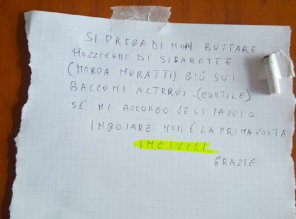 SI PREGA DI NON BUTTARE
MOZZICONI DI SIGARETTE
(MARCA MURATTI) GIÙ SUI
BALCONI ALTRUI. (CORTILE)
SE MI ACCORGO VE LI FACCIO
INGOIARE NON È LA PRIMA VOLTA
INCIVILI
GRAZIE